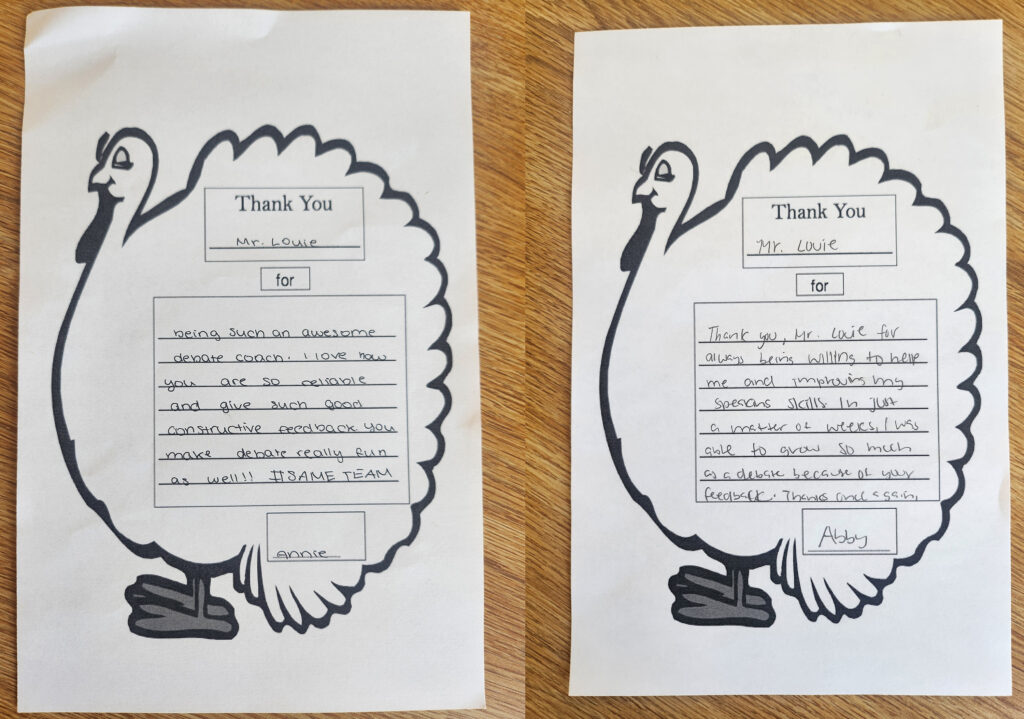 Thank You
Mr. Louie
for
being such an awesome
debate coach. I love how
you are so reliable
and give such good
constructive feedback. You
make debate really fun
as well!! #SAME TEAM
Annie
Thank You
Mr. Louie
for
Thank you, Mr. Louie for
always being willing to help
me and improving my
skills. In just
a matter of weeks, I was
able to grow so much
as a debate because of your
feedback. Thanks again,
Abby